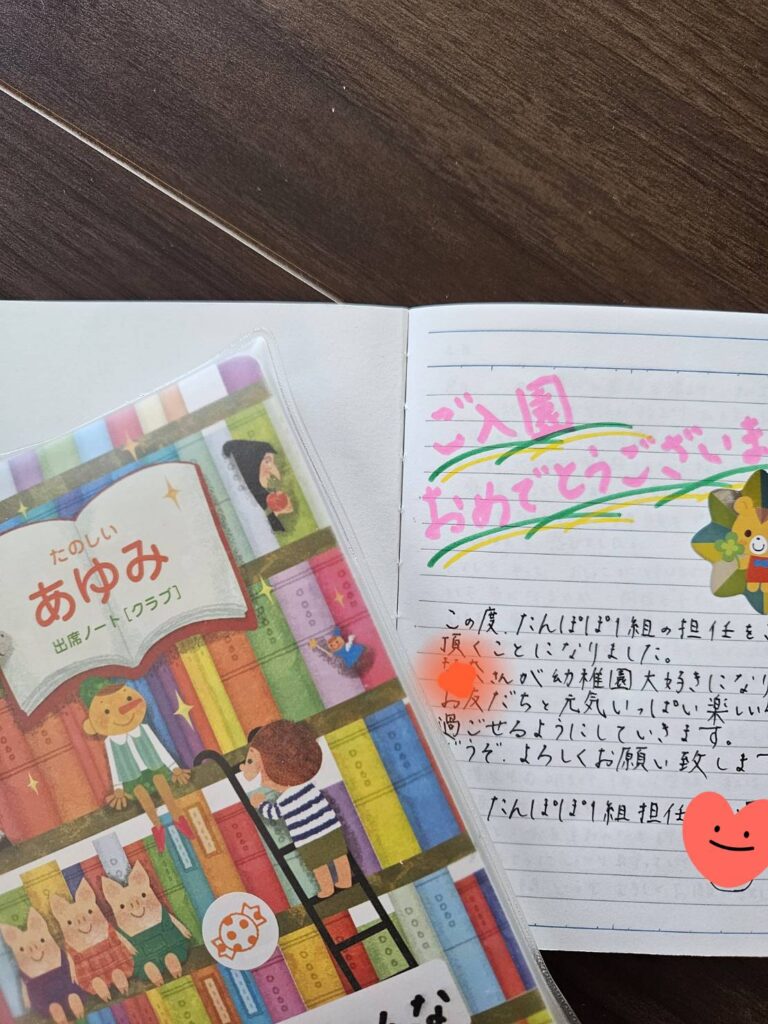 たのしい
あゆみ
出席ノート[クラブ]
ご入園
おめでとうございま
この度、たんぽぽ1組の担任を
頂くことになりました。
さんが幼稚園大好きになり
お友だちと元気いっぱい楽しい
過ごせるようにしていきます。
どうぞ、よろしくお願い致しま
たんぽぽ1組 担任